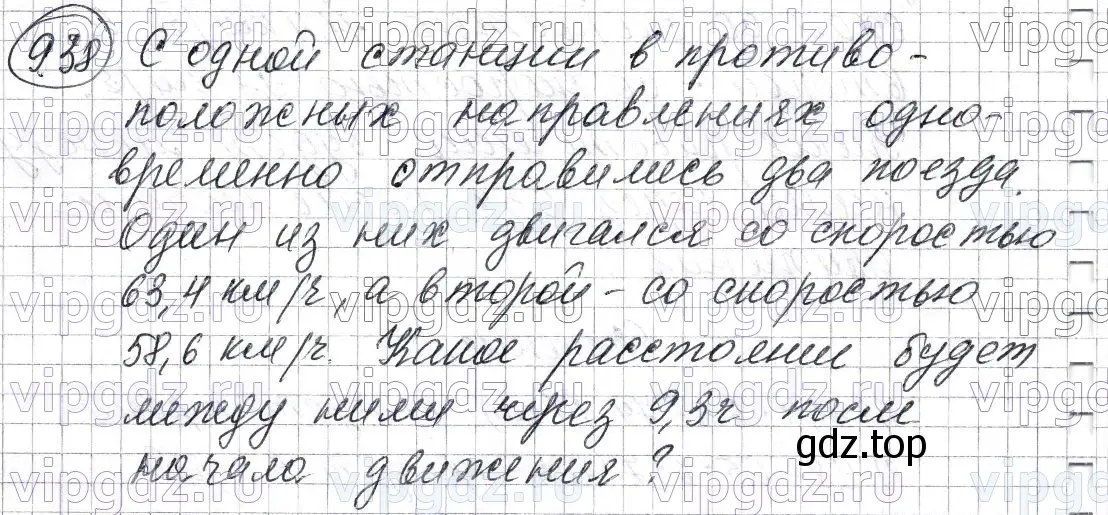 938 С одной станции в противо-
положных направлениях одно-
временно отправились два поезда.
Один из них двигался со скоростью
63,4 км/ч, а второй - со скоростью
58,6 км/ч. Какое расстояние будет
между ними через 9,3ч после
начала движения?
gdz.top
vipgdz.ru